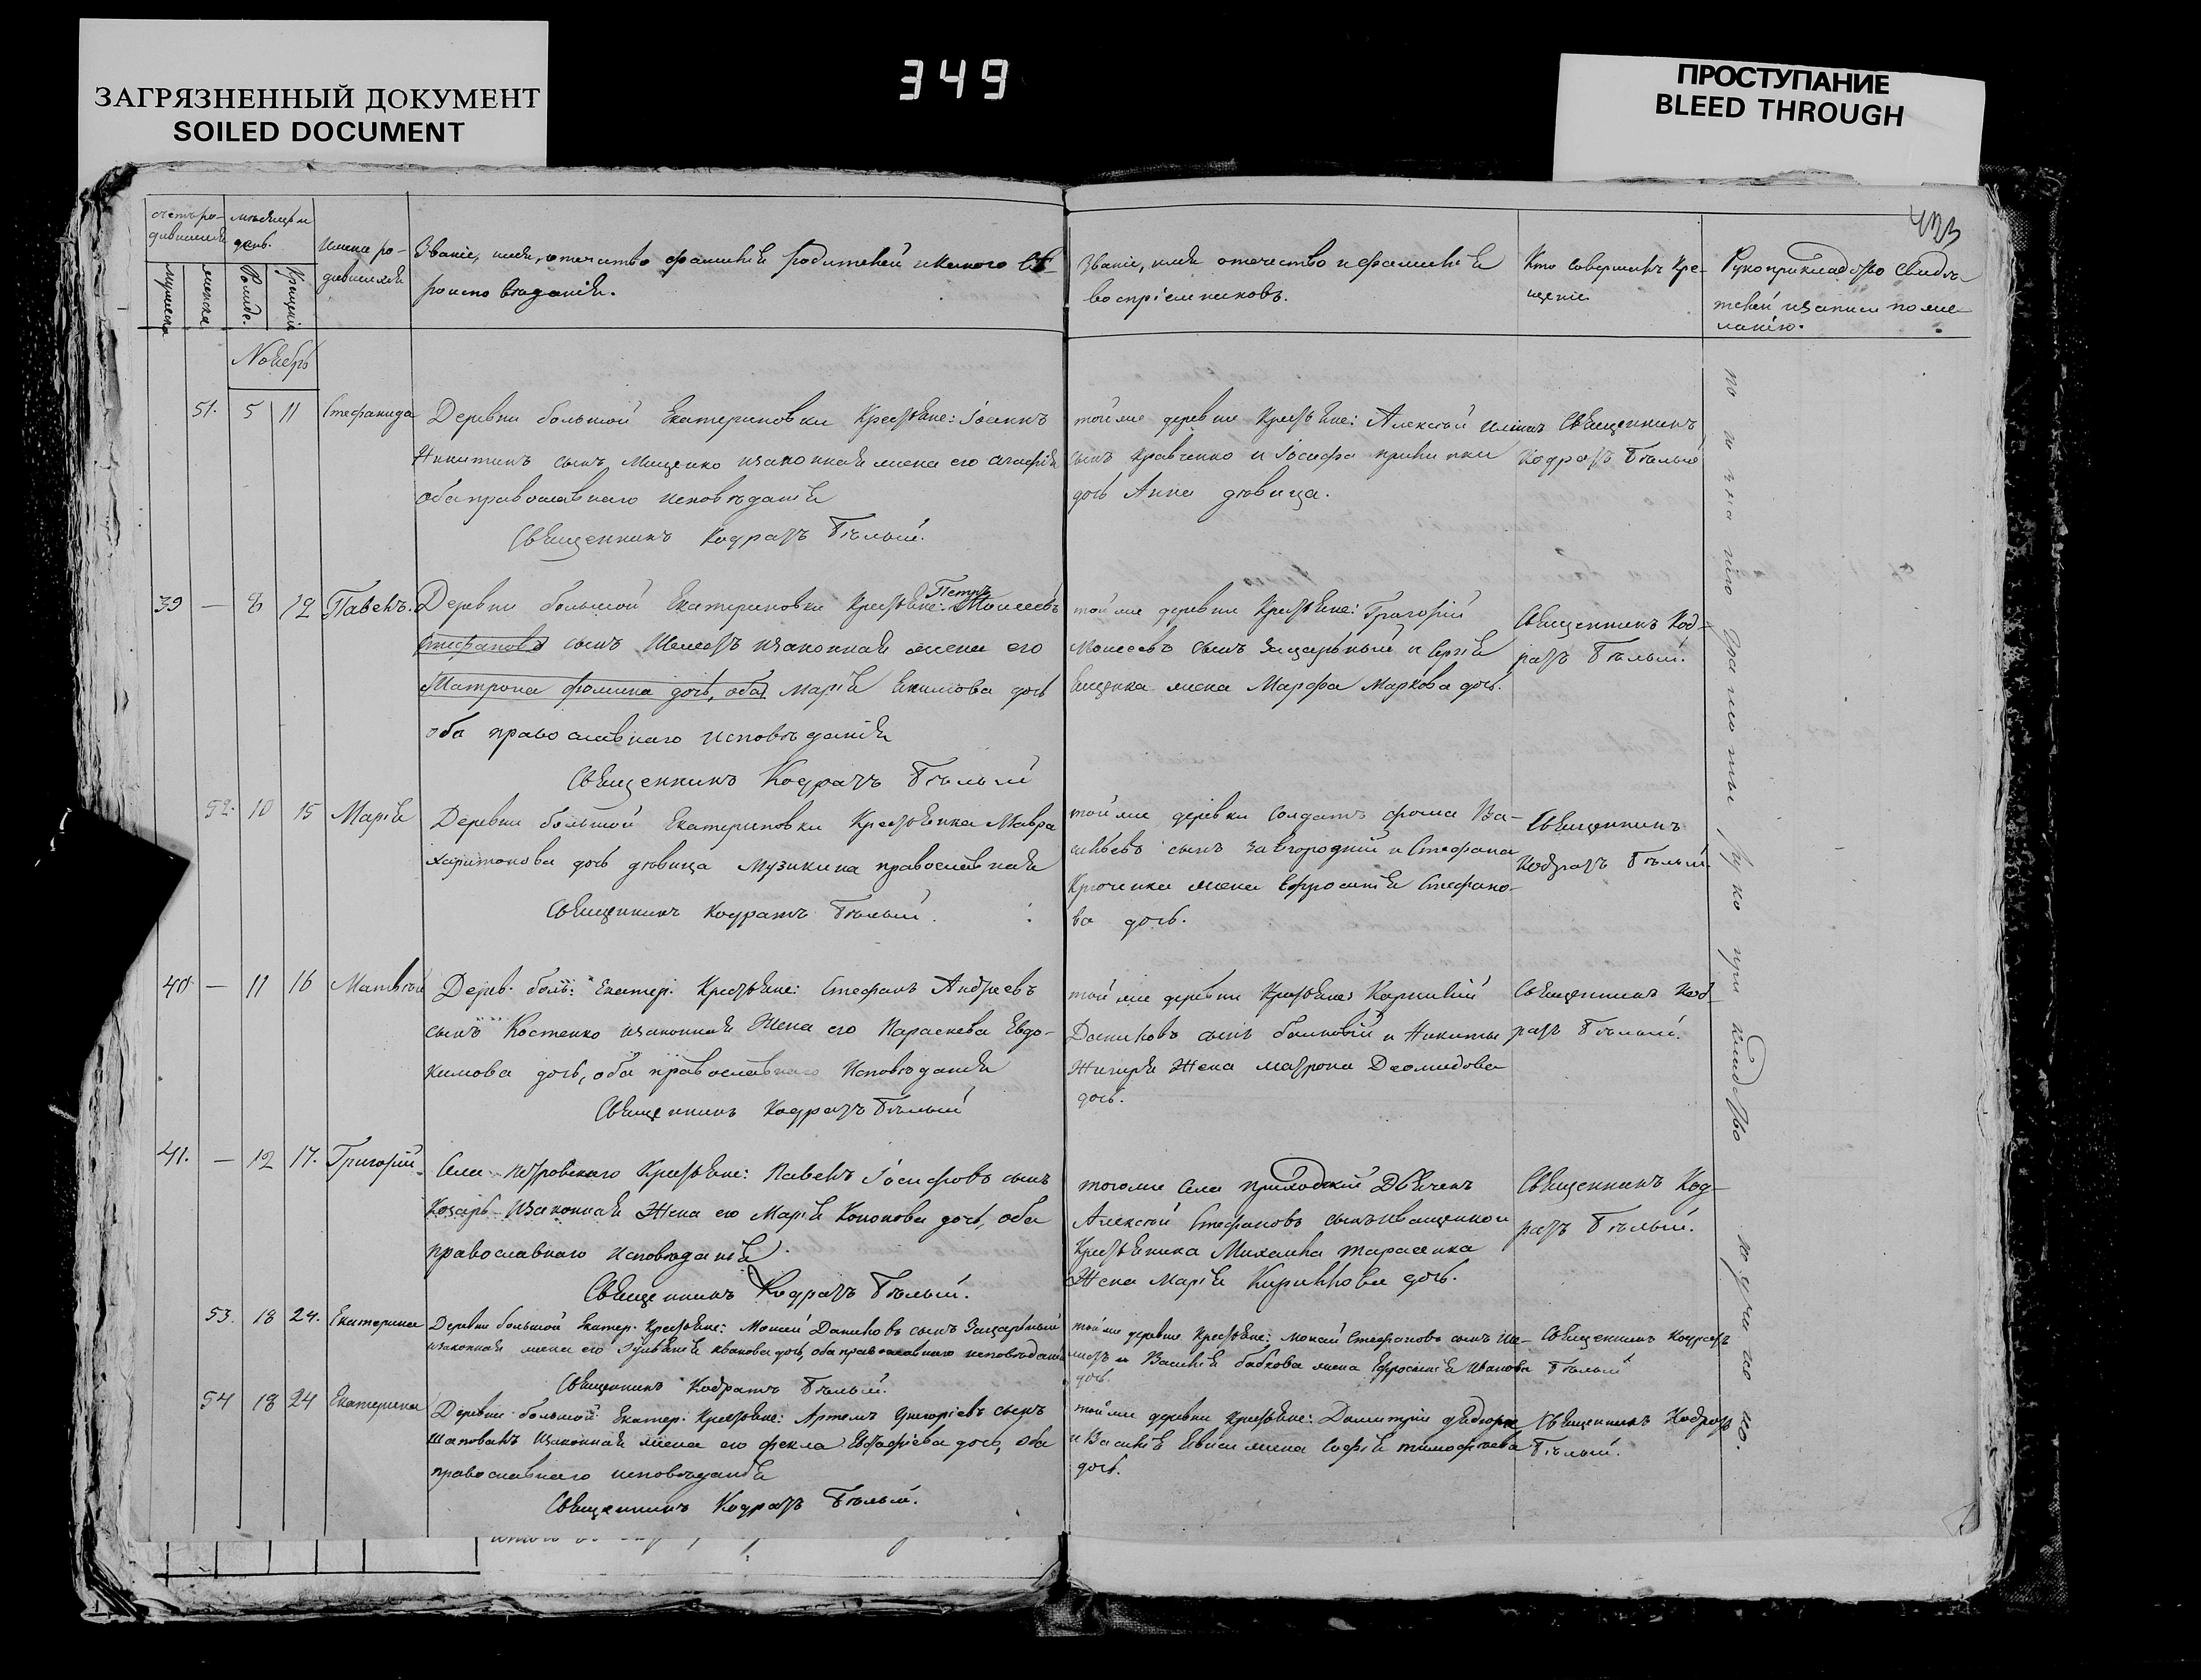 ЗАГРЯЗНЕННЫЙ ДОКУМЕНТ
SOILED DOCUMENT
349
ПРОСТУПАНИЕ
BLEED THROUGH
счетъ ро-
дившихся
мѣсяцъ и
день.
мужеска
женска
Рожде.
Крещенія
Имена ро-
дившихся
Званіе, имя, отечество фамилія родителей и какого вѣ-
роисповѣданія.
Званіе, имя отечество и фамилія
воспріемниковъ.
Кто совершилъ Кре-
щеніе
Рукоприкладство свидѣ-
телей записи по же-
ланію.
Ноябрь
51. 5 11 Стефанида
Деревни большой Екатериновки Крестьяне: Іоаннъ
Никитинъ сынъ Мищенко и законная жена его Агафія
оба православнаго исповѣданія
Священникъ Кодратъ Бѣлый.
той же деревни Крестьяне: Алексѣй
сынъ Кравченко и Іосифа
дочь Анна дѣвица.
Священникъ
Кодратъ Бѣлый
39 — 8 12 Павелъ.
Деревни большой Екатериновки Крестьяне: Петръ Моисеевъ
Стефановъ сынъ Шелестъ и законная жена его
Матрона Фомина дочь, оба Марія Екимова дочь
оба православнаго исповѣданія
Священникъ Кодратъ Бѣлый
той же деревни Крестьяне: Григорій
Моисеевъ сынъ и Сергія
жена Марфа Маркова дочь.
Священникъ Код-
ратъ Бѣлый.
52. 10 15 Марія
Деревни большой Екатериновки Крестьянка Мавра
Харитонова дочь дѣвица Музикина православная
Священникъ Кодратъ Бѣлый.
той же деревни солдатъ Фома Ва-
сильевъ сынъ Завгородній и Стефана
Крючика жена Ефросинія Стефано-
ва дочь.
Священникъ
Кодратъ Бѣлый
40 — 11 16 Матвѣй
Дерев. боль: Екатер. Крестьяне: Стефанъ Андреевъ
сынъ Костенко и законная Жена его Параскева Евдо-
кимова дочь, оба православнаго Исповѣданія
Священникъ Кодратъ Бѣлый
той же деревни Крестьяне: Корнилій
Даниловъ сынъ и Никиты
Жигиря Жена Матрона Диомидова
дочь.
Священникъ Код-
ратъ Бѣлый.
41. — 12 17. Григорій
Села Петровскаго Крестьяне: Павелъ Іосифовъ сынъ
Козарь и законная Жена его Марія Кононова дочь, оба
православнаго исповѣданія.
Священникъ Кодратъ Бѣлый.
того же Села приходскій Дьячекъ
Алексѣй Стефановъ сынъ Иващенко и
Крестьянина Михаила Тарасенка
Жена Марія Кириллова дочь.
Священникъ Код-
ратъ Бѣлый.
53. 18 24. Екатерина
Деревни большой Екатер. Крестьяне: Моисей Даниловъ сынъ
законная жена его Гуліянія Иванова дочь, оба православнаго исповѣданія
Священникъ Кодратъ Бѣлый.
той же деревни Крестьяне: Мокей Стефановъ сынъ Ше-
лестъ и Василія Бабкова жена Ефросинія Иванова
дочь.
Священникъ Кодратъ
Бѣлый
54 18 24 Екатерина
Деревни большой Екатер. Крестьяне: Артемъ Григоріевъ сынъ
Шаповалъ и законная жена его Фекла Евстафіева дочь, оба
православнаго исповѣданія
Священникъ Кодратъ Бѣлый.
той же деревни Крестьяне: Димитрій
и Василія жена Софія Тимофѣева
дочь.
Священникъ Кодратъ
Бѣлый.